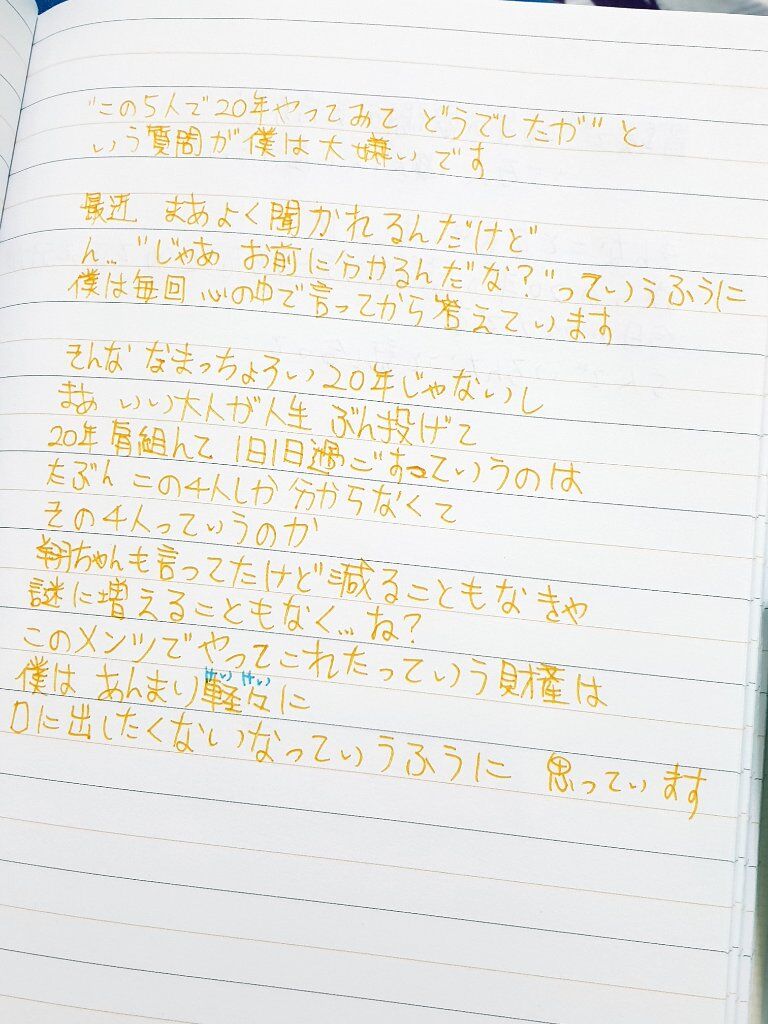 "この5人で20年やってみて どうでしたか"と
いう質問が僕は大嫌いです
最近 まあよく聞かれるんだけど
ん..."じゃあ お前に分かるんだな?"っていうふうに
僕は毎回 心の中で言ってから答えています
そんな なまっちょろい20年じゃないし
まあ いい大人が人生 ぶん投げて
20年 肩組んで 1日1日過ごすっていうのは
たぶん この4人しか 分からなくて
その4人っていうのが
翔ちゃんも言ってたけど減ることもなきゃ
謎に増えることもなく...ね?
このメンツでやってこれたっていう財産は
僕は あんまり軽々に
けいけい
口に出したくないなっていうふうに 思っています